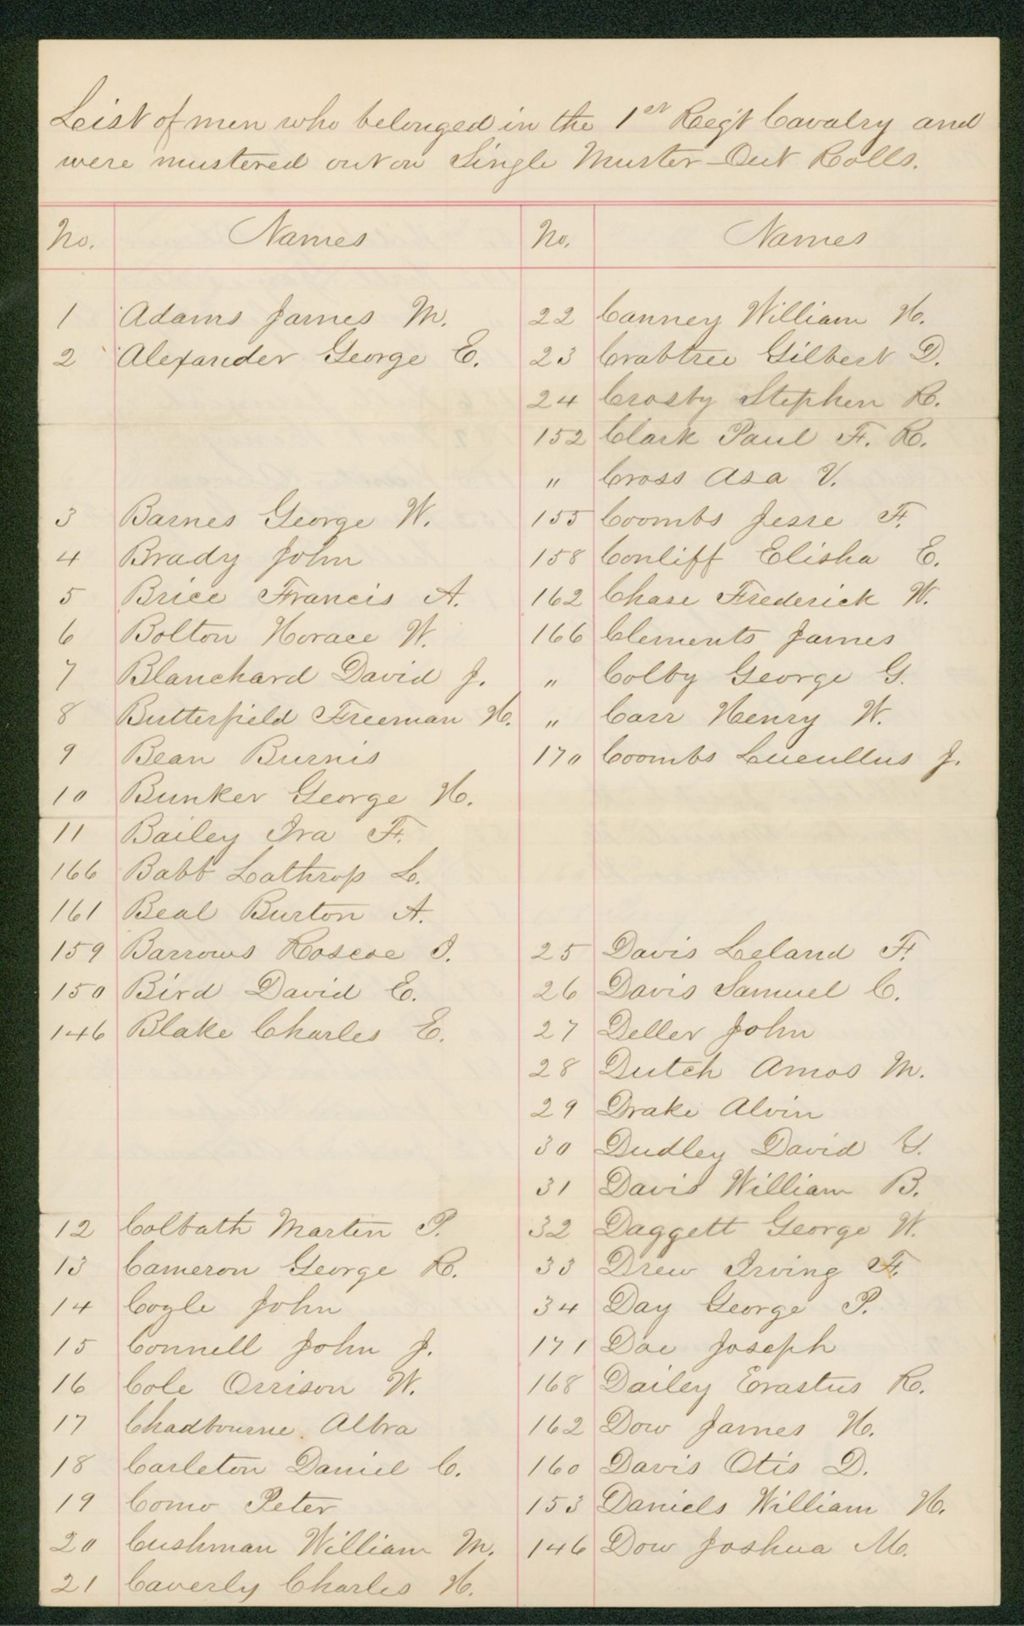 List of men who belonged in the 1st Reg't Cavalry and
were mustered out on Single Muster-Out Rolls.
No. Names
1 Adams James M.
2 Alexander George E.
3 Barnes George W.
4 Brady John
5 Brice Francis A.
6 Bolton Horace W.
7 Blanchard David J.
8 Butterfield Freeman H.
9 Bean Burnis
10 Bunker George H.
11 Bailey Ira F.
166 Babb Lathrop L.
161 Beal Burton A.
159 Barrows Roscoe I.
150 Bird David E.
146 Blake Charles E.
12 Colbath Martin P.
13 Cameron George R.
14 Cogle John
15 Connell John J.
16 Cole Orrison W.
17 Chadbourne Albra
18 Carleton Daniel C.
19 Como Peter
20 Cushman William M.
21 Caverly Charles H.
No. Names
22 Canney William H.
23 Crabtree Gilbert D.
24 Crosby Stephen R.
152 Clark Paul F. R.
" Cross Asa V.
155 Coombs Jesse F.
158 Conliff Elisha E.
162 Chase Frederick W.
166 Clements James
" Colby George G.
" Carr Henry W.
170 Coombs Lucullus J.
25 Davis Leland F.
26 Davis Samuel C.
27 Deller John
28 Dutch Amos M.
29 Drake Alvin
30 Dudley David Y.
31 Davis William B.
32 Daggett George W.
33 Drew Irving F.
34 Day George P.
171 Doe Joseph
168 Dailey Erastus R.
162 Dow James H.
160 Davis Otis D.
153 Daniels William H.
146 Dow Joshua M.